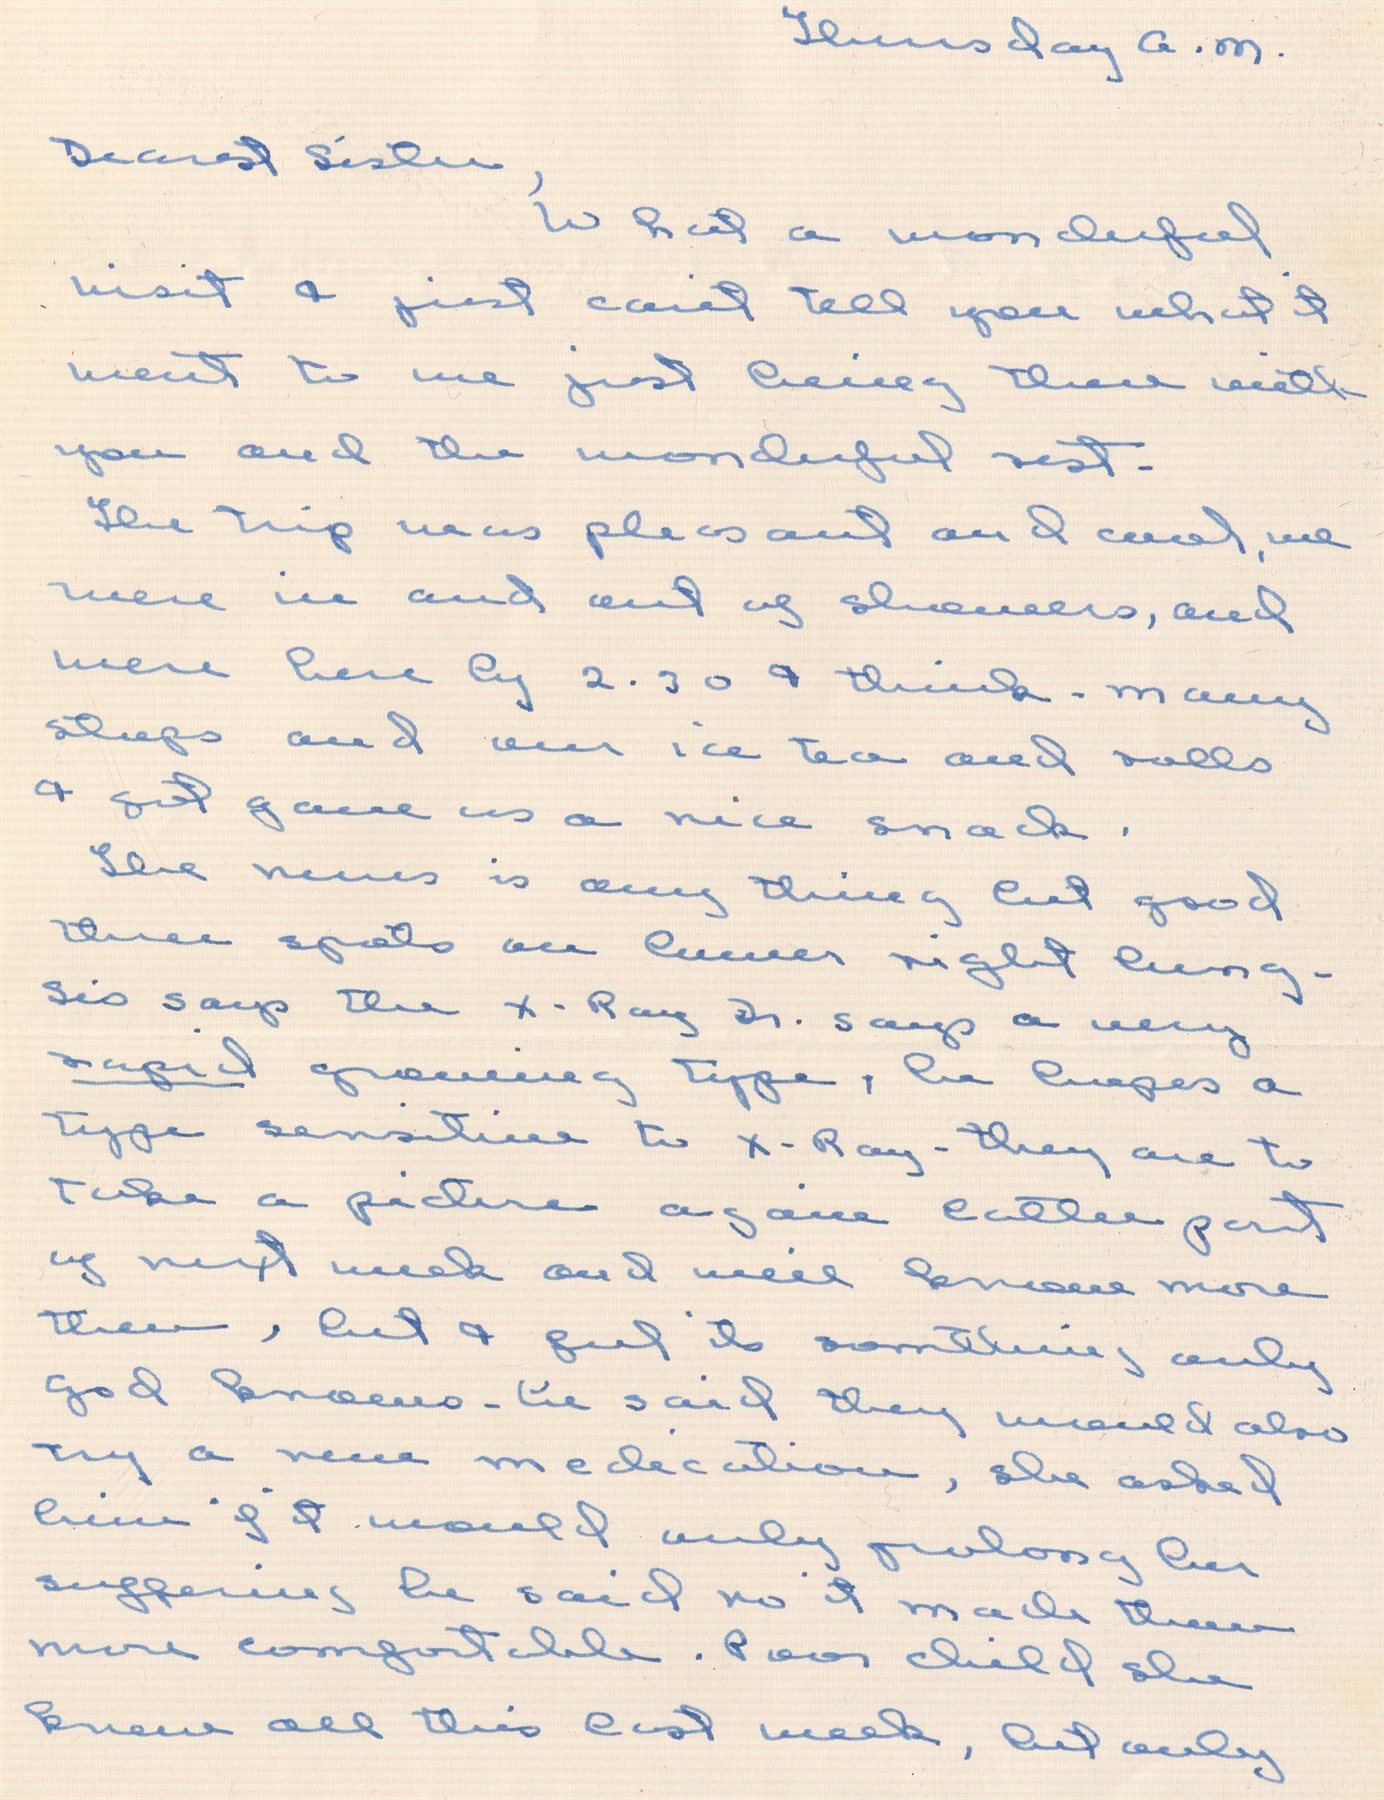 Thursday a.m.
Dearest Sister,
What a wonderful
visit I just can't tell you what it
ment to me just being there with
you and the wonderful rest-
The trip was pleasant and cool, we
were in and out of showers, and
were here by 2.30 I think - many
stops and our ice tea and rolls
I got gave us a nice snack.
The news is any thing but good
three spots on lower right lung -
Sis says the X-Ray Dr. says a very
rapid growing type, he hopes a
type sensitive to X-Ray - they are to
take a picture again latter part
of next week and will know more
then, but I feel its something only
god knows - He said they would also
try a new medication, she asked
him if it would only prolong her
suffering he said no it made them
more comfortable. Poor child she
knew all this last week, but only